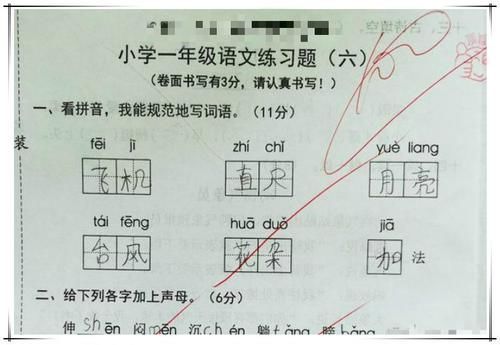 小学一年级语文练习题（六）
（卷面书写有3分，请认真书写！）
一、看拼音，我能规范地写词语。（11分）
装
fēi jī zhí chǐ yuè liang
飞机 直尺 月亮
tái fēng huā duǒ jiā
台风 花朵 加法
二、给下列各字加上声母。（6分）
伸shēn 闷mēn 沉chén 躺tǎng 膀bǎng